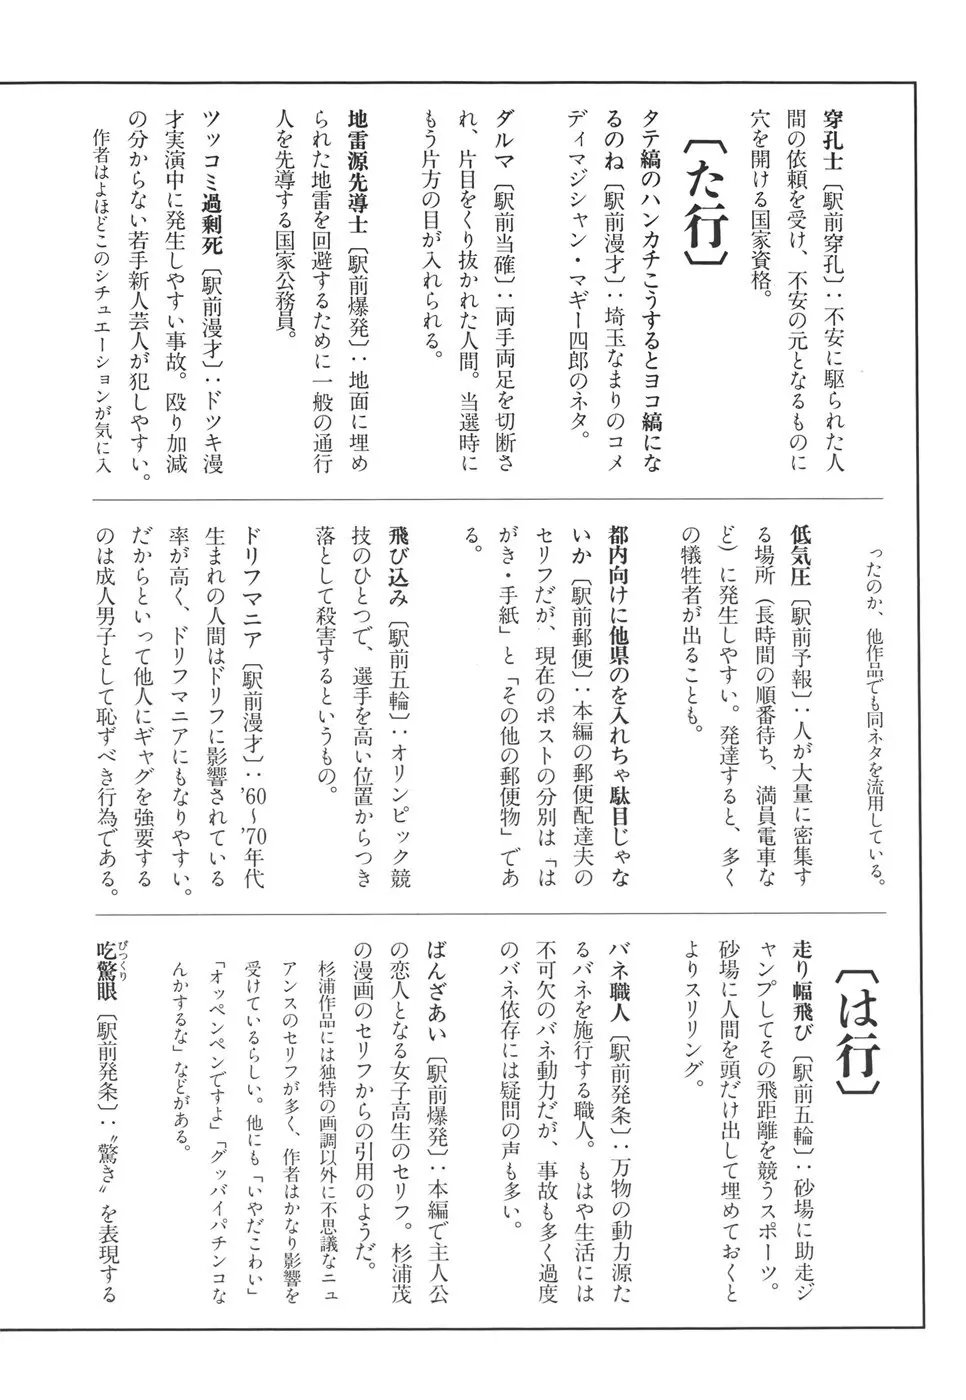 穿孔士〔駅前穿孔〕：不安に駆られた人
間の依頼を受け、不安の元となるものに
穴を開ける国家資格。
〔た行〕
タテ縞のハンカチこうするとヨコ縞にな
るのね〔駅前漫才〕：埼玉なまりのコメ
ディマジシャン・マギー四郎のネタ。
ダルマ〔駅前当確〕：両手両足を切断さ
れ、片目をくり抜かれた人間。当選時に
もう片方の目が入れられる。
地雷源先導士〔駅前爆発〕：地面に埋め
られた地雷を回避するために一般の通行
人を先導する国家公務員。
ツッコミ過剰死〔駅前漫才〕：ドツキ漫
才実演中に発生しやすい事故。殴り加減
の分からない若手新人芸人が犯しやすい。
作者はよほどこのシチュエーションが気に入
ったのか、他作品でも同ネタを流用している。
低気圧〔駅前予報〕：人が大量に密集す
る場所（長時間の順番待ち、満員電車な
ど）に発生しやすい。発達すると、多く
の犠牲者が出ることも。
都内向けに他県のを入れちゃ駄目じゃな
いか〔駅前郵便〕：本編の郵便配達夫の
セリフだが、現在のポストの分別は「は
がき・手紙」と「その他の郵便物」であ
る。
飛び込み〔駅前五輪〕：オリンピック競
技のひとつで、選手を高い位置からつき
落として殺害するというもの。
ドリフマニア〔駅前漫才〕：’60〜’70年代
生まれの人間はドリフに影響されている
率が高く、ドリフマニアにもなりやすい。
だからといって他人にギャグを強要する
のは成人男子として恥ずべき行為である。
〔は行〕
走り幅飛び〔駅前五輪〕：砂場に助走ジ
ャンプしてその飛距離を競うスポーツ。
砂場に人間を頭だけ出して埋めておくと
よりスリリング。
バネ職人〔駅前発条〕：万物の動力源た
るバネを施行する職人。もはや生活には
不可欠のバネ動力だが、事故も多く過度
のバネ依存には疑問の声も多い。
ばんざあい〔駅前爆発〕：本編で主人公
の恋人となる女子高生のセリフ。杉浦茂
の漫画のセリフからの引用のようだ。
杉浦作品には独特の画調以外に不思議なニュ
アンスのセリフが多く、作者はかなり影響を
受けているらしい。他にも「いやだこわい」
「オッペンペンですよ」「グッバイパチンコな
んかするな」などがある。
吃驚眼〔駅前発条〕：〝驚き〟を表現する
びつくり